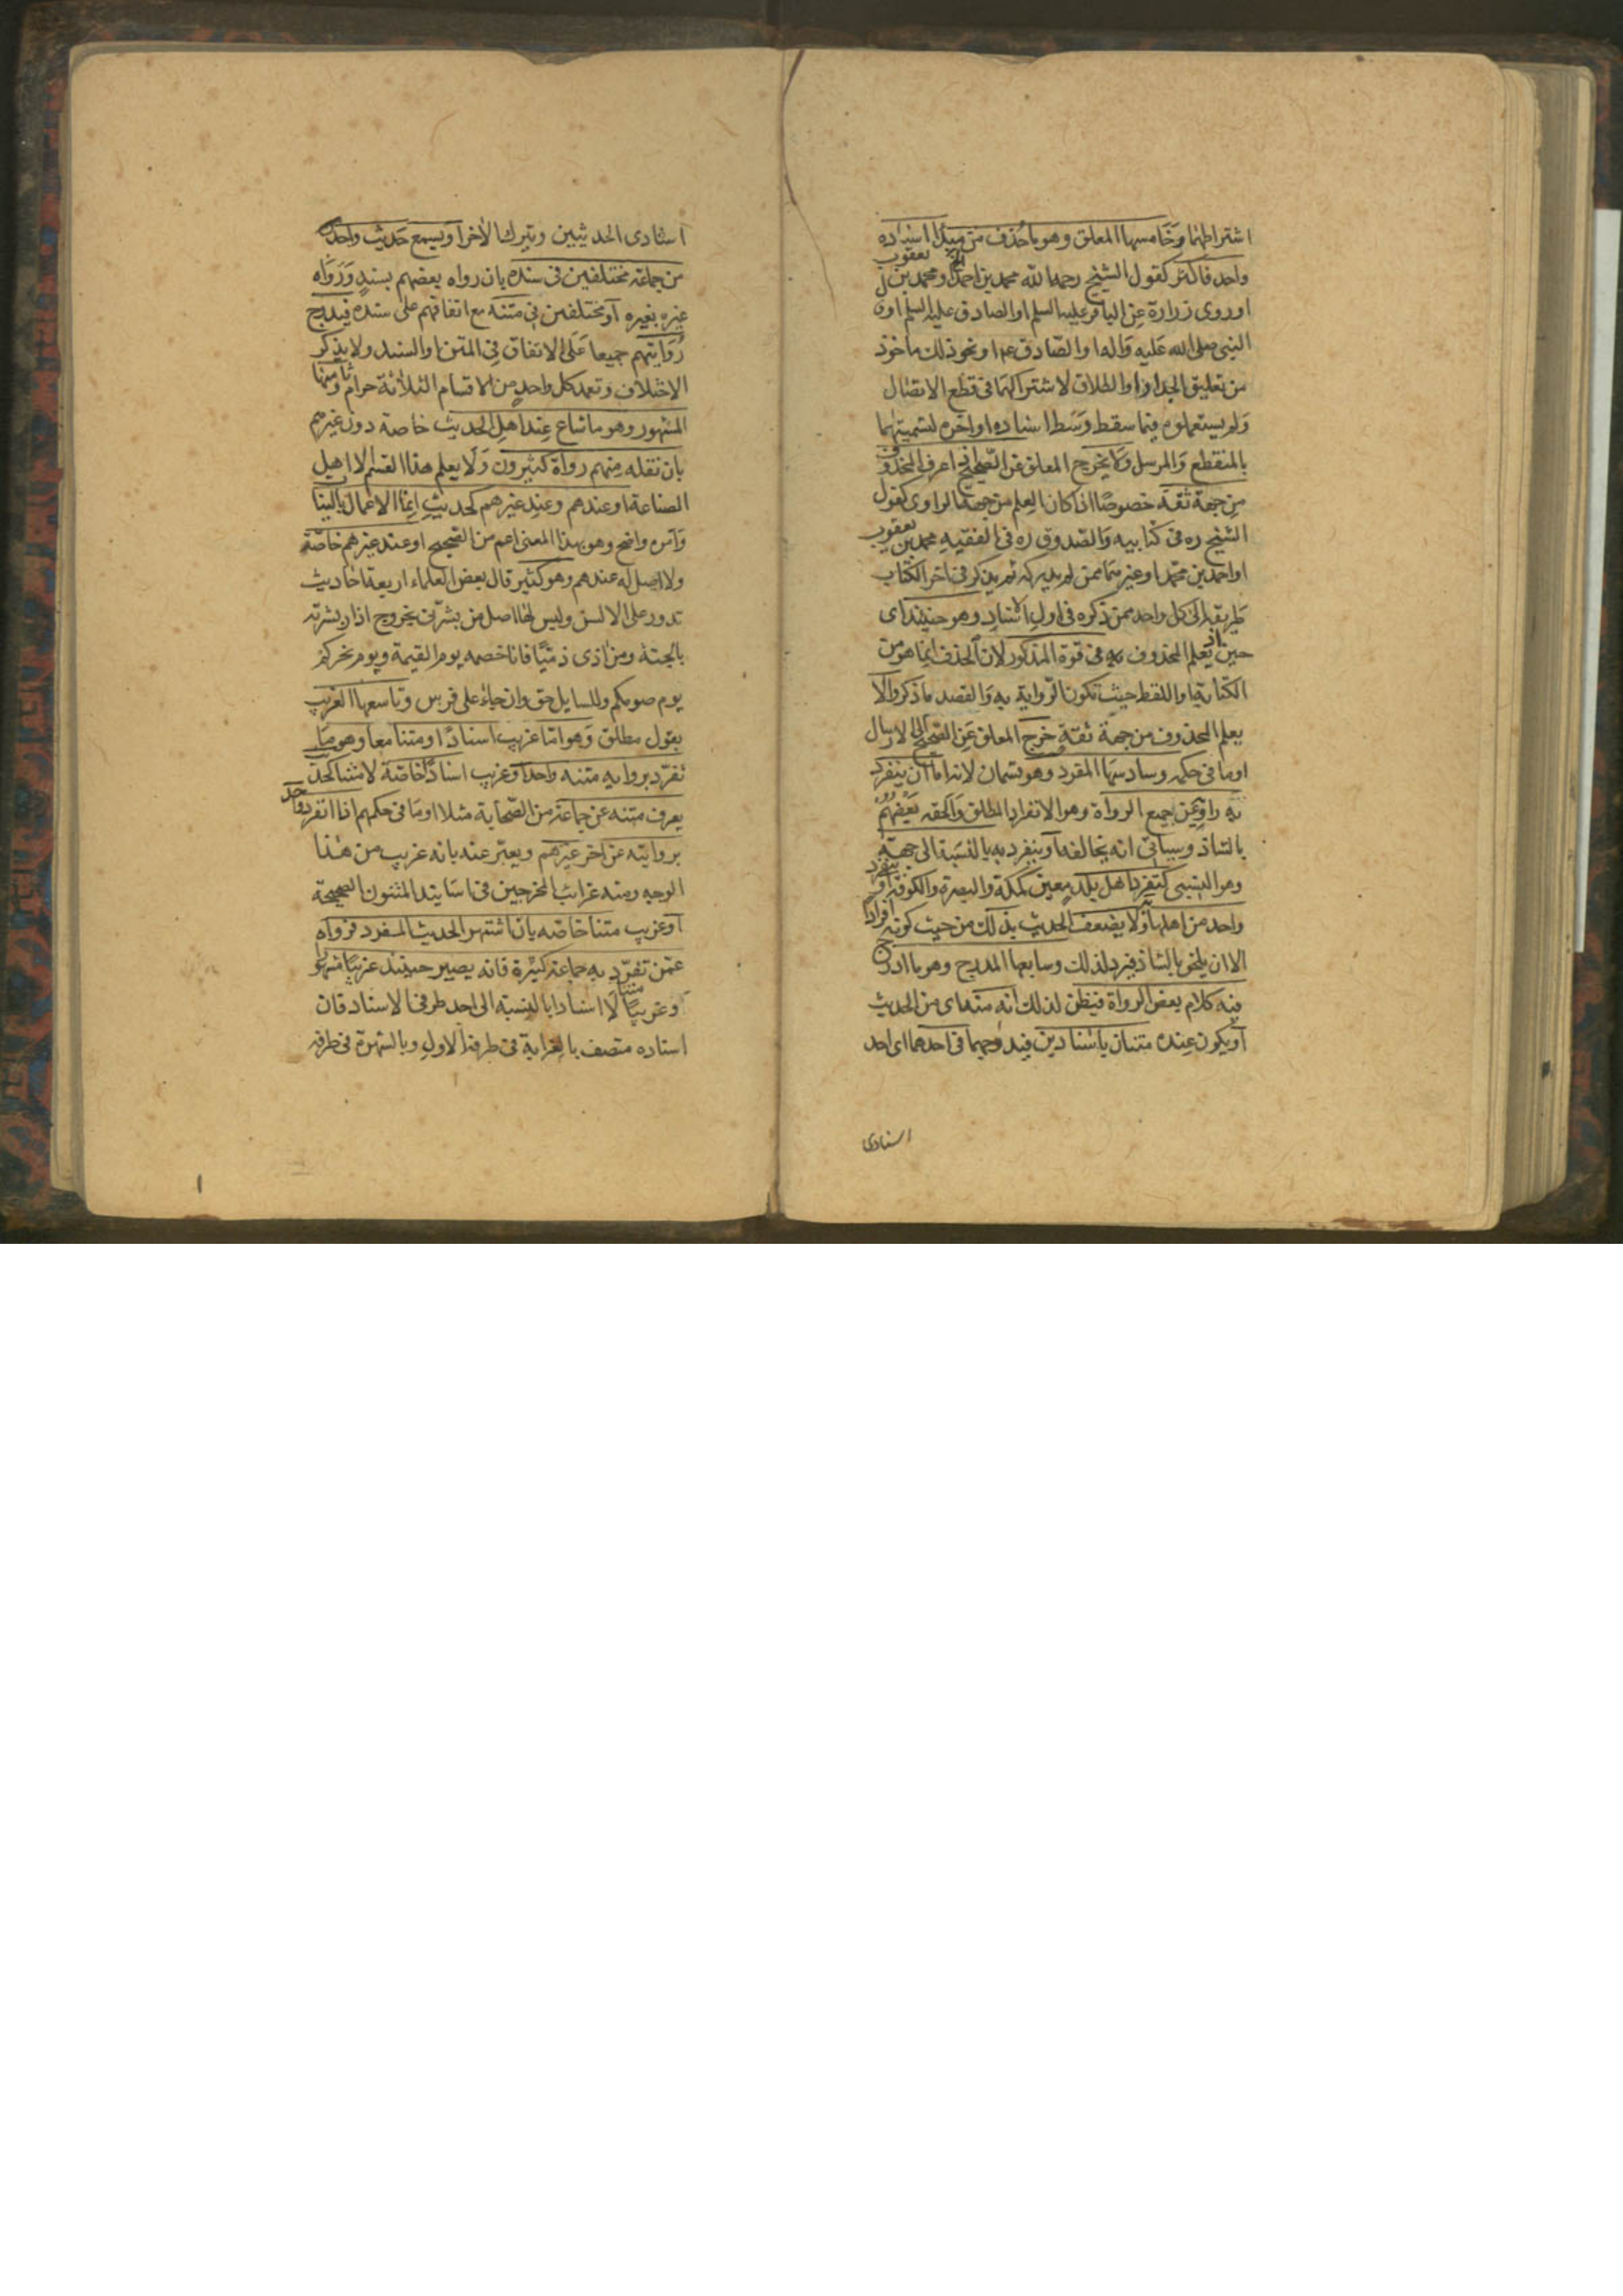 اشتراطهما وخامسها المعلق وهو ما حذف من مبدأ اسناده
واحد فاكثر كقول الشيخ رحمه الله محمد بن احمد او محمد بن يعقوب
او روى زرارة عن الباقر عليه السلم او الصادق عليه السلم او ن
النبي صلى الله عليه واله او الصادق ع م او نحو ذلك ماخوذ
من تعليق الجدار او الطلاق لاشتراكهما في قطع الاتصال
ولم يستعملوه فيما سقط وسط اسناده او اخره لتسميتهما
بالمنقطع والمرسل ولا يخرج المعلق عن الصحيح اذا عرف المحذوف
من جهة ثقة خصوصا اذا كان العلم من جهة الراوى كقول
الشيخ ره فى كتابيه والصدوق ره فى الفقيه محمد بن يعقوب
او احمد بن محمد او غيرهما ممن لم يدركه ثم يذكر فى اخر الكتاب
طريقه الى كل واحد ممن ذكره فى اول الاسناد وهو حينئذ اى
حين اذ يعلم المحذوف فى قوة المذكور لان الحذف انما هو من
الكتابة او اللفظ حيث تكون الرواية به والقصد ما ذكر والا
يعلم المحذوف من جهة ثقة خرج المعلق عن الصحيح الى الارسال
او ما فى حكمه وسادسها المفرد وهو قسمان لانه اما ان ينفرد
به راويه عن جميع الرواة وهو الانفراد المطلق والحقه بعضهم
بالشاذ وسياتى انه يخالفه او ينفرد به بالنسبة الى جهة
وهو النسبى كتفرد اهل بلد معين كمكة والبصرة والكوفة او تفرد
واحد من اهلها ولا يضعف الحديث بذلك من حيث كونه افرادا
الا ان يلحق بالشاذ فيرد لذلك وسابعها المدرج وهو ما ادرج
فيه كلام بعض الرواة فيظن لذلك انه منه اى من الحديث
او يكون عنده متنان باسنادين فيدرجهما فى احدهما اى احد
اسنادى
اسنادى الحديثين ويترك الاخر او يسمع حديث واحد
من جماعة مختلفين فى سنده بان رواه بعضهم بسند ورواه
غيره بغيره او مختلفين فى متنه مع اتفاقهم على سنده فيدرج
روايتهم جميعا على الاتفاق فى المتن او السند ولا يذكر
الاختلاف وتعمد كل واحد من الاقسام الثلاثة حرام وثامنها
المشهور وهو ما شاع عند اهل الحديث خاصة دون غيرهم
بان نقله منهم رواة كثيرون ولا يعلم هذا القسم الا اهل
الصناعة او عندهم وعند غيرهم كحديث انما الاعمال بالنيات
وامره واضح وهو بهذا المعنى اعم من الصحيح او عند غيرهم خاصة
ولا اصل له عندهم وهو كثير قال بعض العلماء اربعة احاديث
تدور على الالسن وليس لها اصل من بشرنى بخروج اذار بشرته
بالجنة ومن اذى ذميا فانا خصمه يوم القيمة ويوم نحركم
يوم صومكم وللسايل حق وان جاء على فرس وتاسعها الغريب
بقول مطلق وهو اما غريب اسنادا ومتنا معا وهو ما
تفرد برواية متنه واحد او غريب اسنادا خاصة لا متنا كحديث
يعرف متنه عن جماعة من الصحابة مثلا او ما فى حكمهم اذا انفرد واحد
بروايته عن اخر غيرهم ويعبر عنه بانه غريب من هذا
الوجه ومنه غرائب المخرجين فى اسانيد المتون الصحيحة
او غريب متنا خاصه بان اشتهر الحديث المفرد فرواه
عمن تفرد به جماعة كثيرة فانه يصير حينئذ غريبا مشهورا
وغريبا متنا لا اسنادا بالنسبه الى احد طرفى الاسناد فان
اسناده متصف بالغرابة فى طرفه الاول وبالشهرة فى طرفه